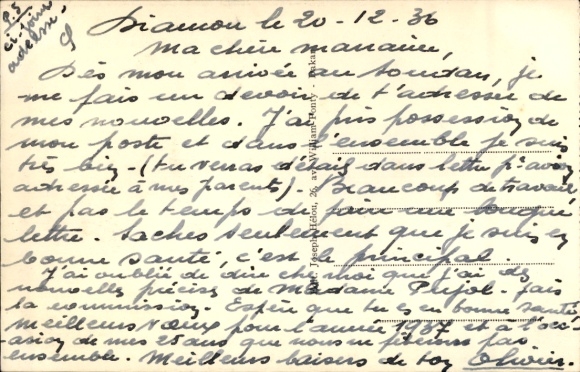 P.S
ci-jour
adresse.
Diamou le 20-12-36
Ma chère marraine,
Dès mon arrivée au Soudan, je
me fais un devoir de t'adresser de
mes nouvelles. J'ai pris possession de
mon poste et dans l'ensemble je suis
très bien - (tu verras détails dans lettre pr avion
adressée à mes parents). Beaucoup de travail
et pas le temps de faire une longue
lettre. Saches seulement que je suis en
bonne santé, c'est le principal.
J'ai oublié de dire chez moi que j'ai des
nouvelles précises de Madame Pujol. fais
la commission. Espère que tu es en bonne santé
Meilleurs vœux pour l'année 1937 et à l'occ-
asion de mes 25 ans que nous ne fêterons pas
ensemble. Meilleurs baisers de ton Olivier.
Joseph Hélou, 26, av. William-Ponty - Dakar